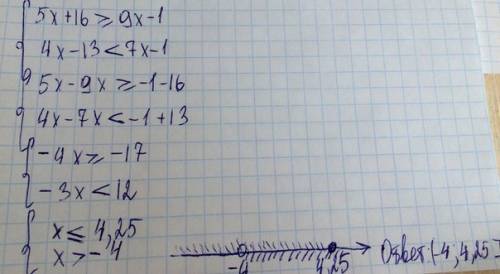 5x+16 ≥ 9x-1
4x-13 < 7x-1
5x-9x ≥ -1-16
4x-7x < -1+13
-4x ≥ -17
-3x < 12
x ≤ 4,25
x > -4
-4 4,25
Ответ (-4; 4,25]